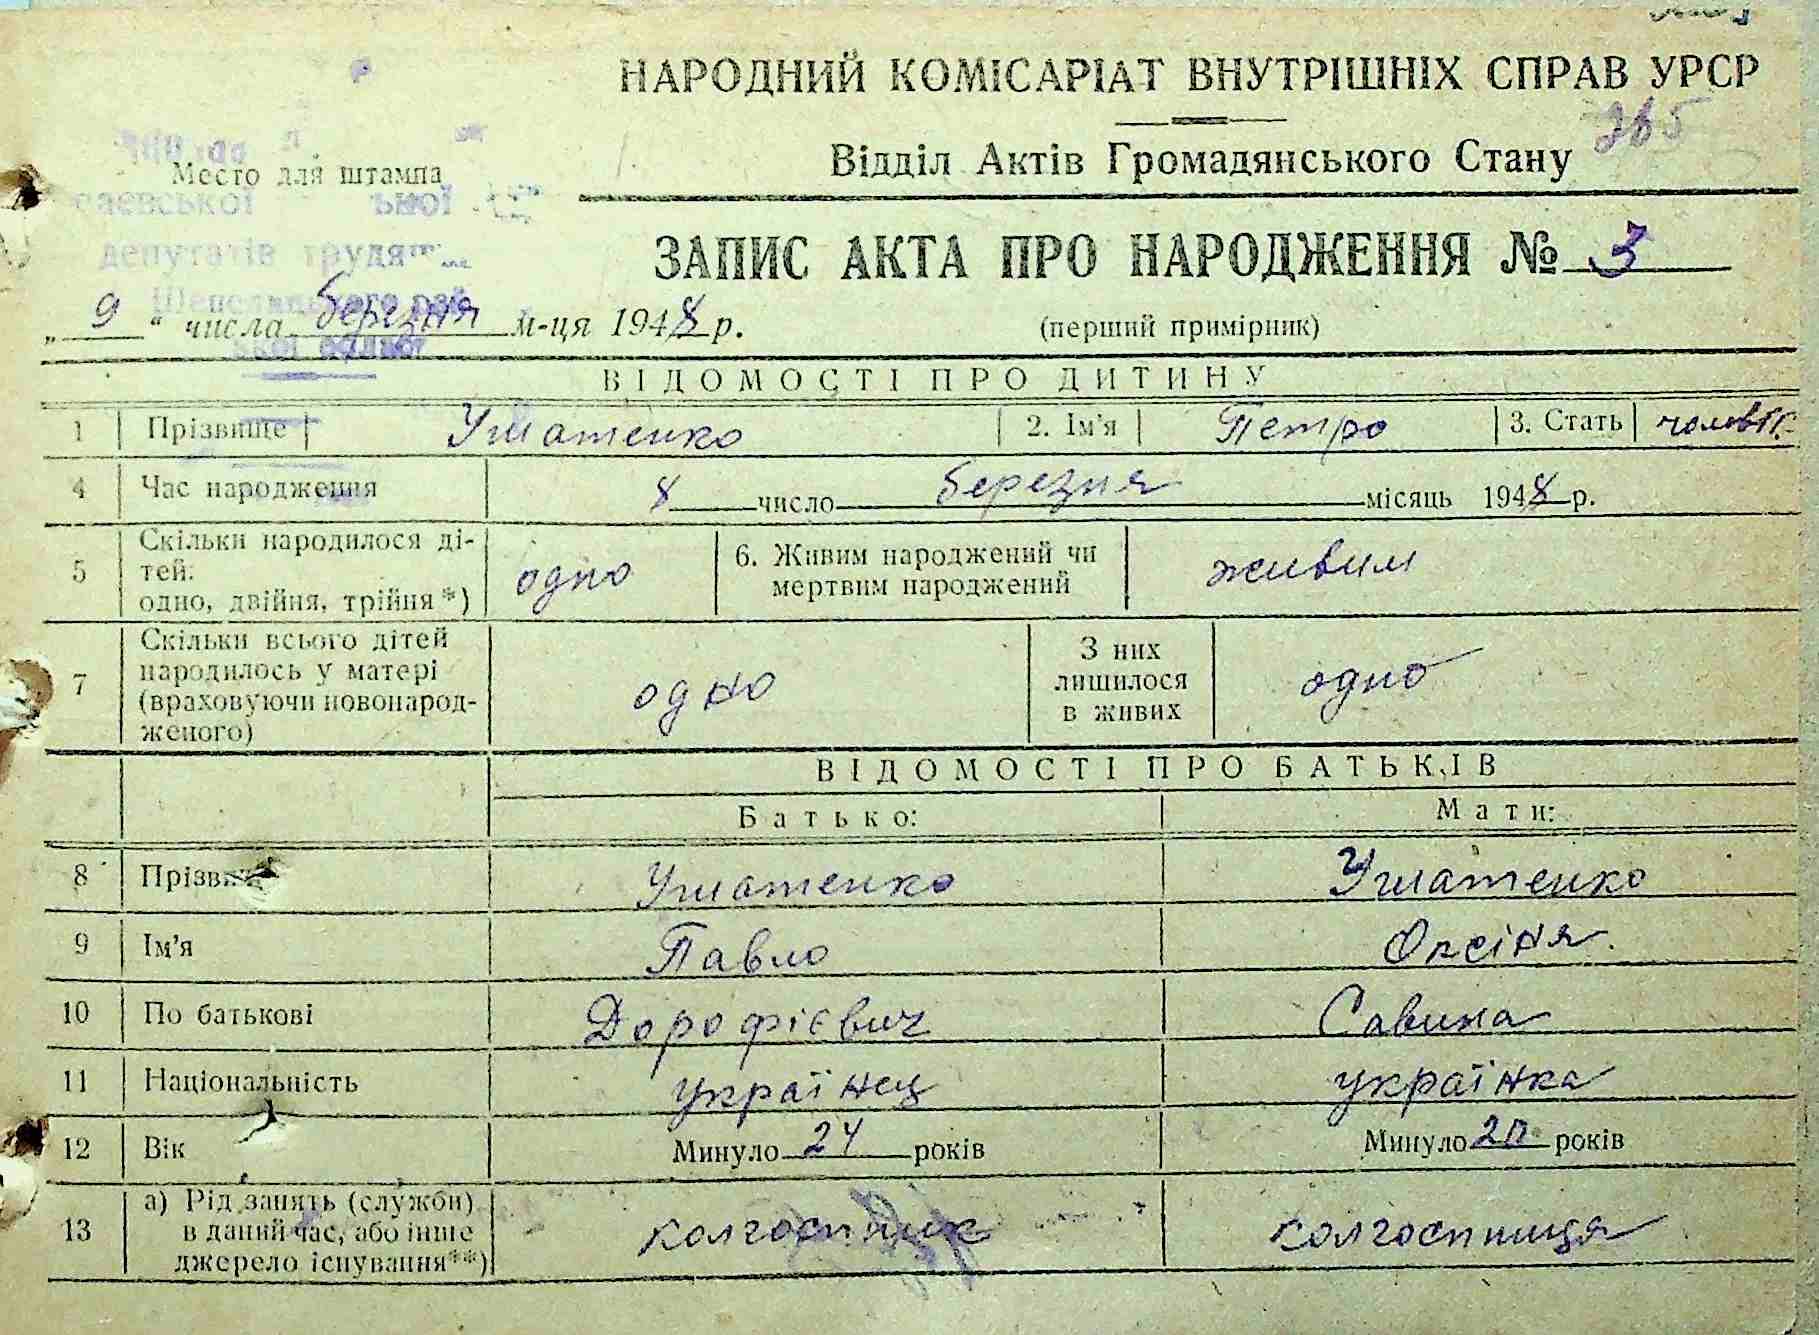 НАРОДНИЙ КОМІСАРІАТ ВНУТРІШНІХ СПРАВ УРСР
265
Відділ Актів Громадянського Стану
Место для штампа
депутатів
ЗАПИС АКТА ПРО НАРОДЖЕННЯ № 3
„ 9 “ числа березня м-ця 1948 р. (перший примірник)
ВІДОМОСТІ ПРО ДИТИНУ
1 Прізвище Уматенко 2. Ім'я Петро 3. Стать
4 Час народження 8 число березня місяць 1948 р.
5 Скільки народилося ді-
тей:
одно, двійня, трійня*) одно 6. Живим народжений чи
мертвим народжений живим
7 Скільки всього дітей
народилось у матері
(враховуючи новонарод-
женого) одно З них
лишилося
в живих одно
ВІДОМОСТІ ПРО БАТЬКІВ
Батько: Мати:
8 Прізвище Уматенко Уматенко
9 Ім'я Павло Оксіня
10 По батькові Дорофієвич Савина
11 Національність українец українка
12 Вік Минуло 24 років Минуло 20 років
13 а) Рід занять (служби)
в даний час, або інше
джерело існування**) колгоспник колгоспниця